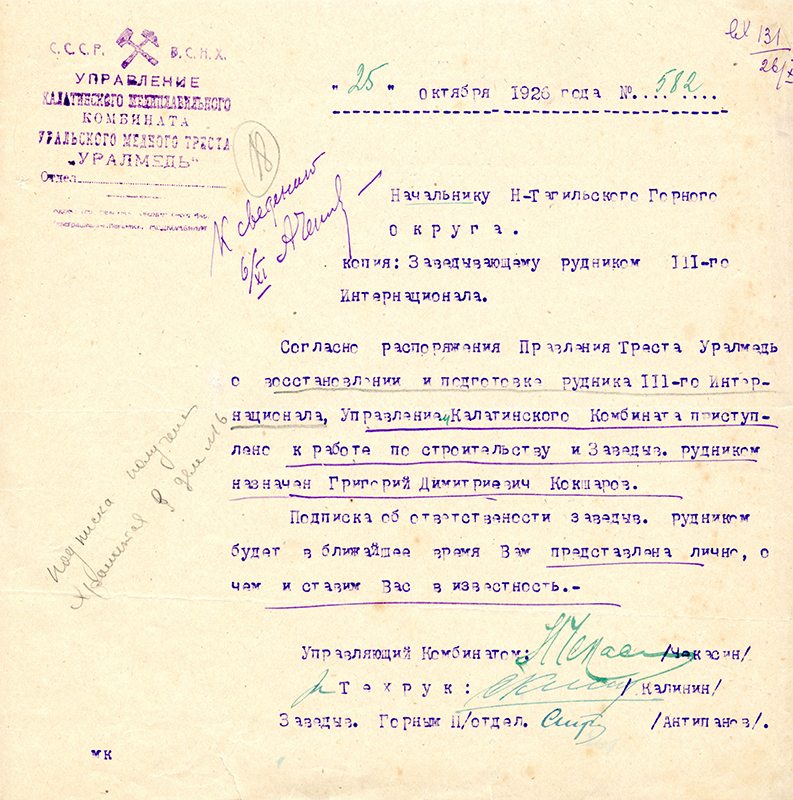 С.С.С.Р. В.С.Н.Х.
УПРАВЛЕНИЕ
КАЛАТИНСКОГО МЕДЕПЛАВИЛЬНОГО
КОМБИНАТА
УРАЛЬСКОГО МЕДНОГО ТРЕСТА
„УРАЛМЕДЬ"
Отдел
вх 131
26/X
"25" октября 1926 года №....582....
18
К сведению
6/XI
Начальнику Н-Тагильского Горного
округа.
копия: Заведывающему рудником III-го
Интернационала.
Согласно распоряжения Правления Треста Уралмедь
о восстановлении и подготовке рудника III-го Интер-
национала, Управлением Калатинского Комбината приступ-
лено к работе по строительству и Заведыв. рудником
назначен Григорий Димитриевич Кокшаров.
Подписка об ответствости заведыв. рудником
будет в ближайшее время Вам представлена лично, о
чем и ставим Вас в известность.-
Подписка получена
хранится в деле №16
Управляющий Комбинатом: /Чекасин/
Техрук: /Калинин/
Заведыв. Горным П/отдел. /Антипанов/.
мк